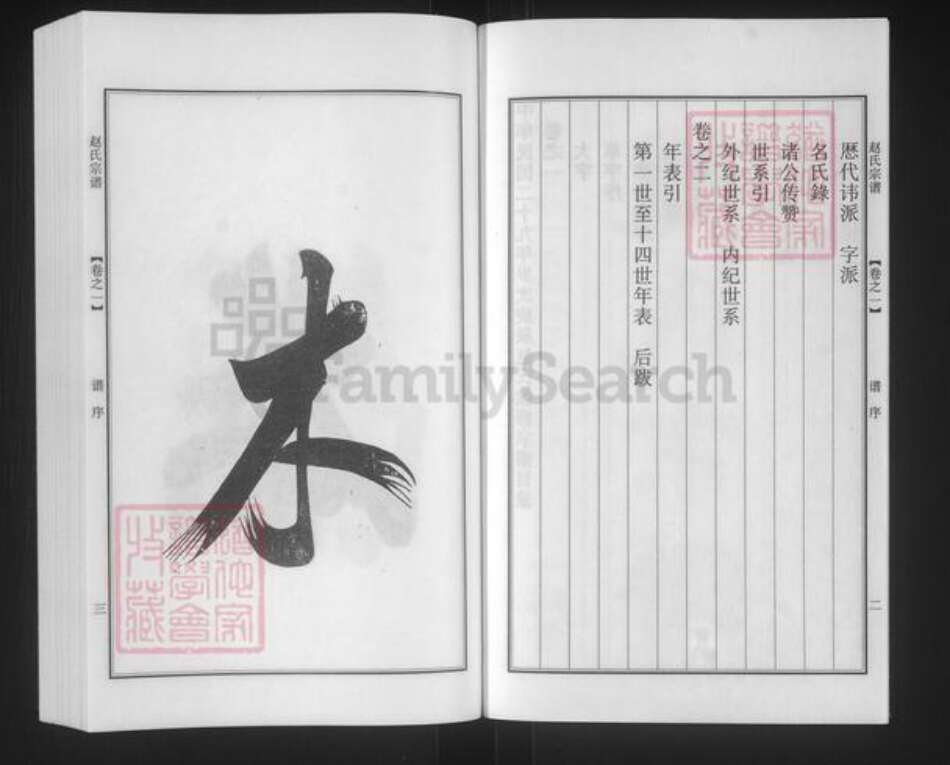 赵氏宗谱
【卷之一】
谱序
二
历代讳派 字派
名氏錄
诸公传赞
世系引
外纪世系 内纪世系
卷之二
年表引
第一世至十四世年表 后跋
木
赵氏宗谱
【卷之一】
谱序
三
FamilySearch